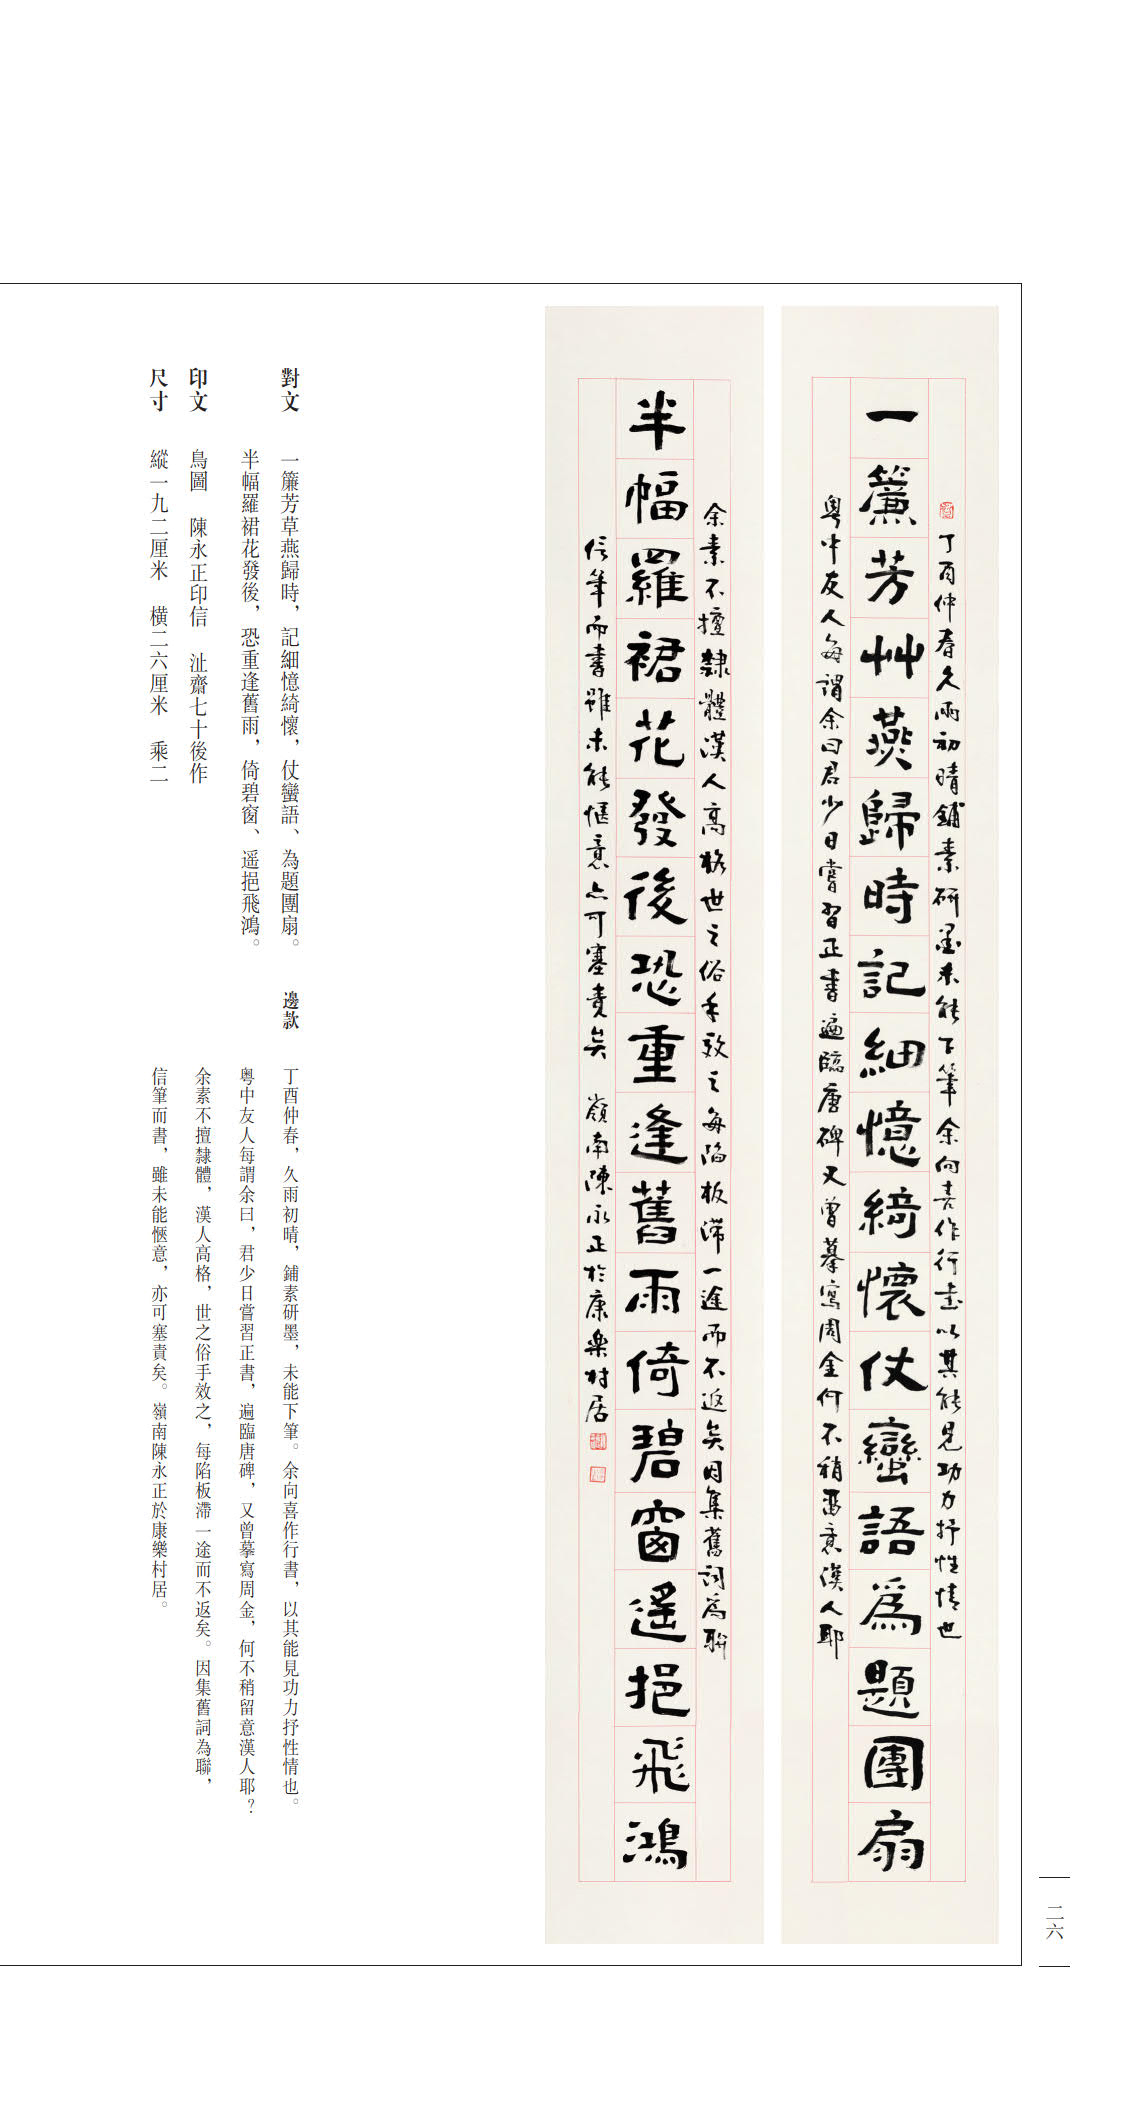 一簾芳艸燕歸時記細憶綺懷仗蠻語為題團扇
丁酉仲春久雨初晴鋪素研墨未能下筆余向喜作行書以其能見功力抒性情也
粵中友人每謂余曰君少日嘗習正書遍臨唐碑又曾摹寫周金何不稍留意漢人耶
半幅羅裙花發後恐重逢舊雨倚碧窗遥挹飛鴻
余素不擅隸體漢人高格世之俗手效之每陷板滯一途而不返矣因集舊詞為聯
信筆而書雖未能愜意亦可塞責矣 嶺南陳永正於康樂村居
對文 一簾芳草燕歸時，記細憶綺懷，仗蠻語、為題團扇。
半幅羅裙花發後，恐重逢舊雨，倚碧窗、遥挹飛鴻。
印文 鳥圖 陳永正印信 沚齋七十後作
尺寸 縱一九二厘米 橫二六厘米 乘二
邊款 丁酉仲春，久雨初晴，鋪素研墨，未能下筆。余向喜作行書，以其能見功力抒性情也。
粵中友人每謂余曰，君少日嘗習正書，遍臨唐碑，又曾摹寫周金，何不稍留意漢人耶？
余素不擅隸體，漢人高格，世之俗手效之，每陷板滯一途而不返矣。因集舊詞為聯，
信筆而書，雖未能愜意，亦可塞責矣。嶺南陳永正於康樂村居。
二六